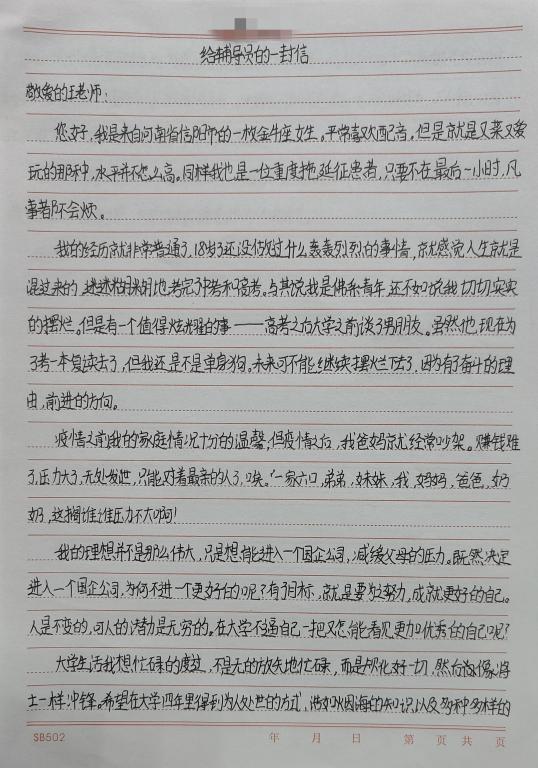 给辅导员的一封信
敬爱的王老师:
您好,我是来自河南省信阳市的一枚金牛座女生。平常喜欢配音。但是就是又菜又爱
玩的那种,水平并不怎么高。同样我也是一位重度拖延症患者,只要不在最后一小时,凡
事都不会烦。
我的经历就非常普通了,18岁了还没做过什么轰轰烈烈的事情,就感觉人生就是
混过来的,迷迷糊糊地考完了中考和高考。与其说我是佛系青年,还不如说我切切实实
的摆烂。但是有一个值得炫耀的事——高考之后大学之前谈了男朋友。虽然他现在为
了考一本复读去了,但我还是不是单身狗。未来可不能继续摆烂下去了,因为有了奋斗的理
由,前进的方向。
疫情之前我的家庭情况十分的温馨,但疫情之后,我爸妈就经常吵架。赚钱难
了,压力大了,无处发泄,只能对着最亲的人了,唉。一家六口,弟弟,妹妹,我,妈妈,爸爸,奶
奶,这搁谁谁压力不大啊!
我的理想并不是那么伟大,只是想能进入一个国企公司,减缓父母的压力。既然决定
进入一个国企公司,为何不进一个更好的呢?有了目标,就是要为之努力,成就更好的自己。
人是不变的,可人的潜力是无穷的。在大学不逼自己一把又怎能看见更加优秀的自己呢?
大学生活我想忙碌的度过,不是无的放矢地忙碌,而是规化好一切,然后像将
士一样冲锋。希望在大学四年里得到为人处世的方式,浩如烟海的知识,以及多种多样的
SB502
年 月 日 第 页 共 页